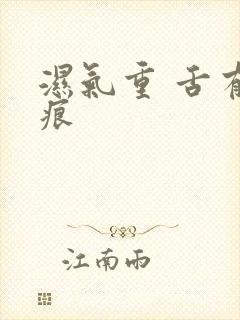 濕氣重 舌有
痕
江南雨